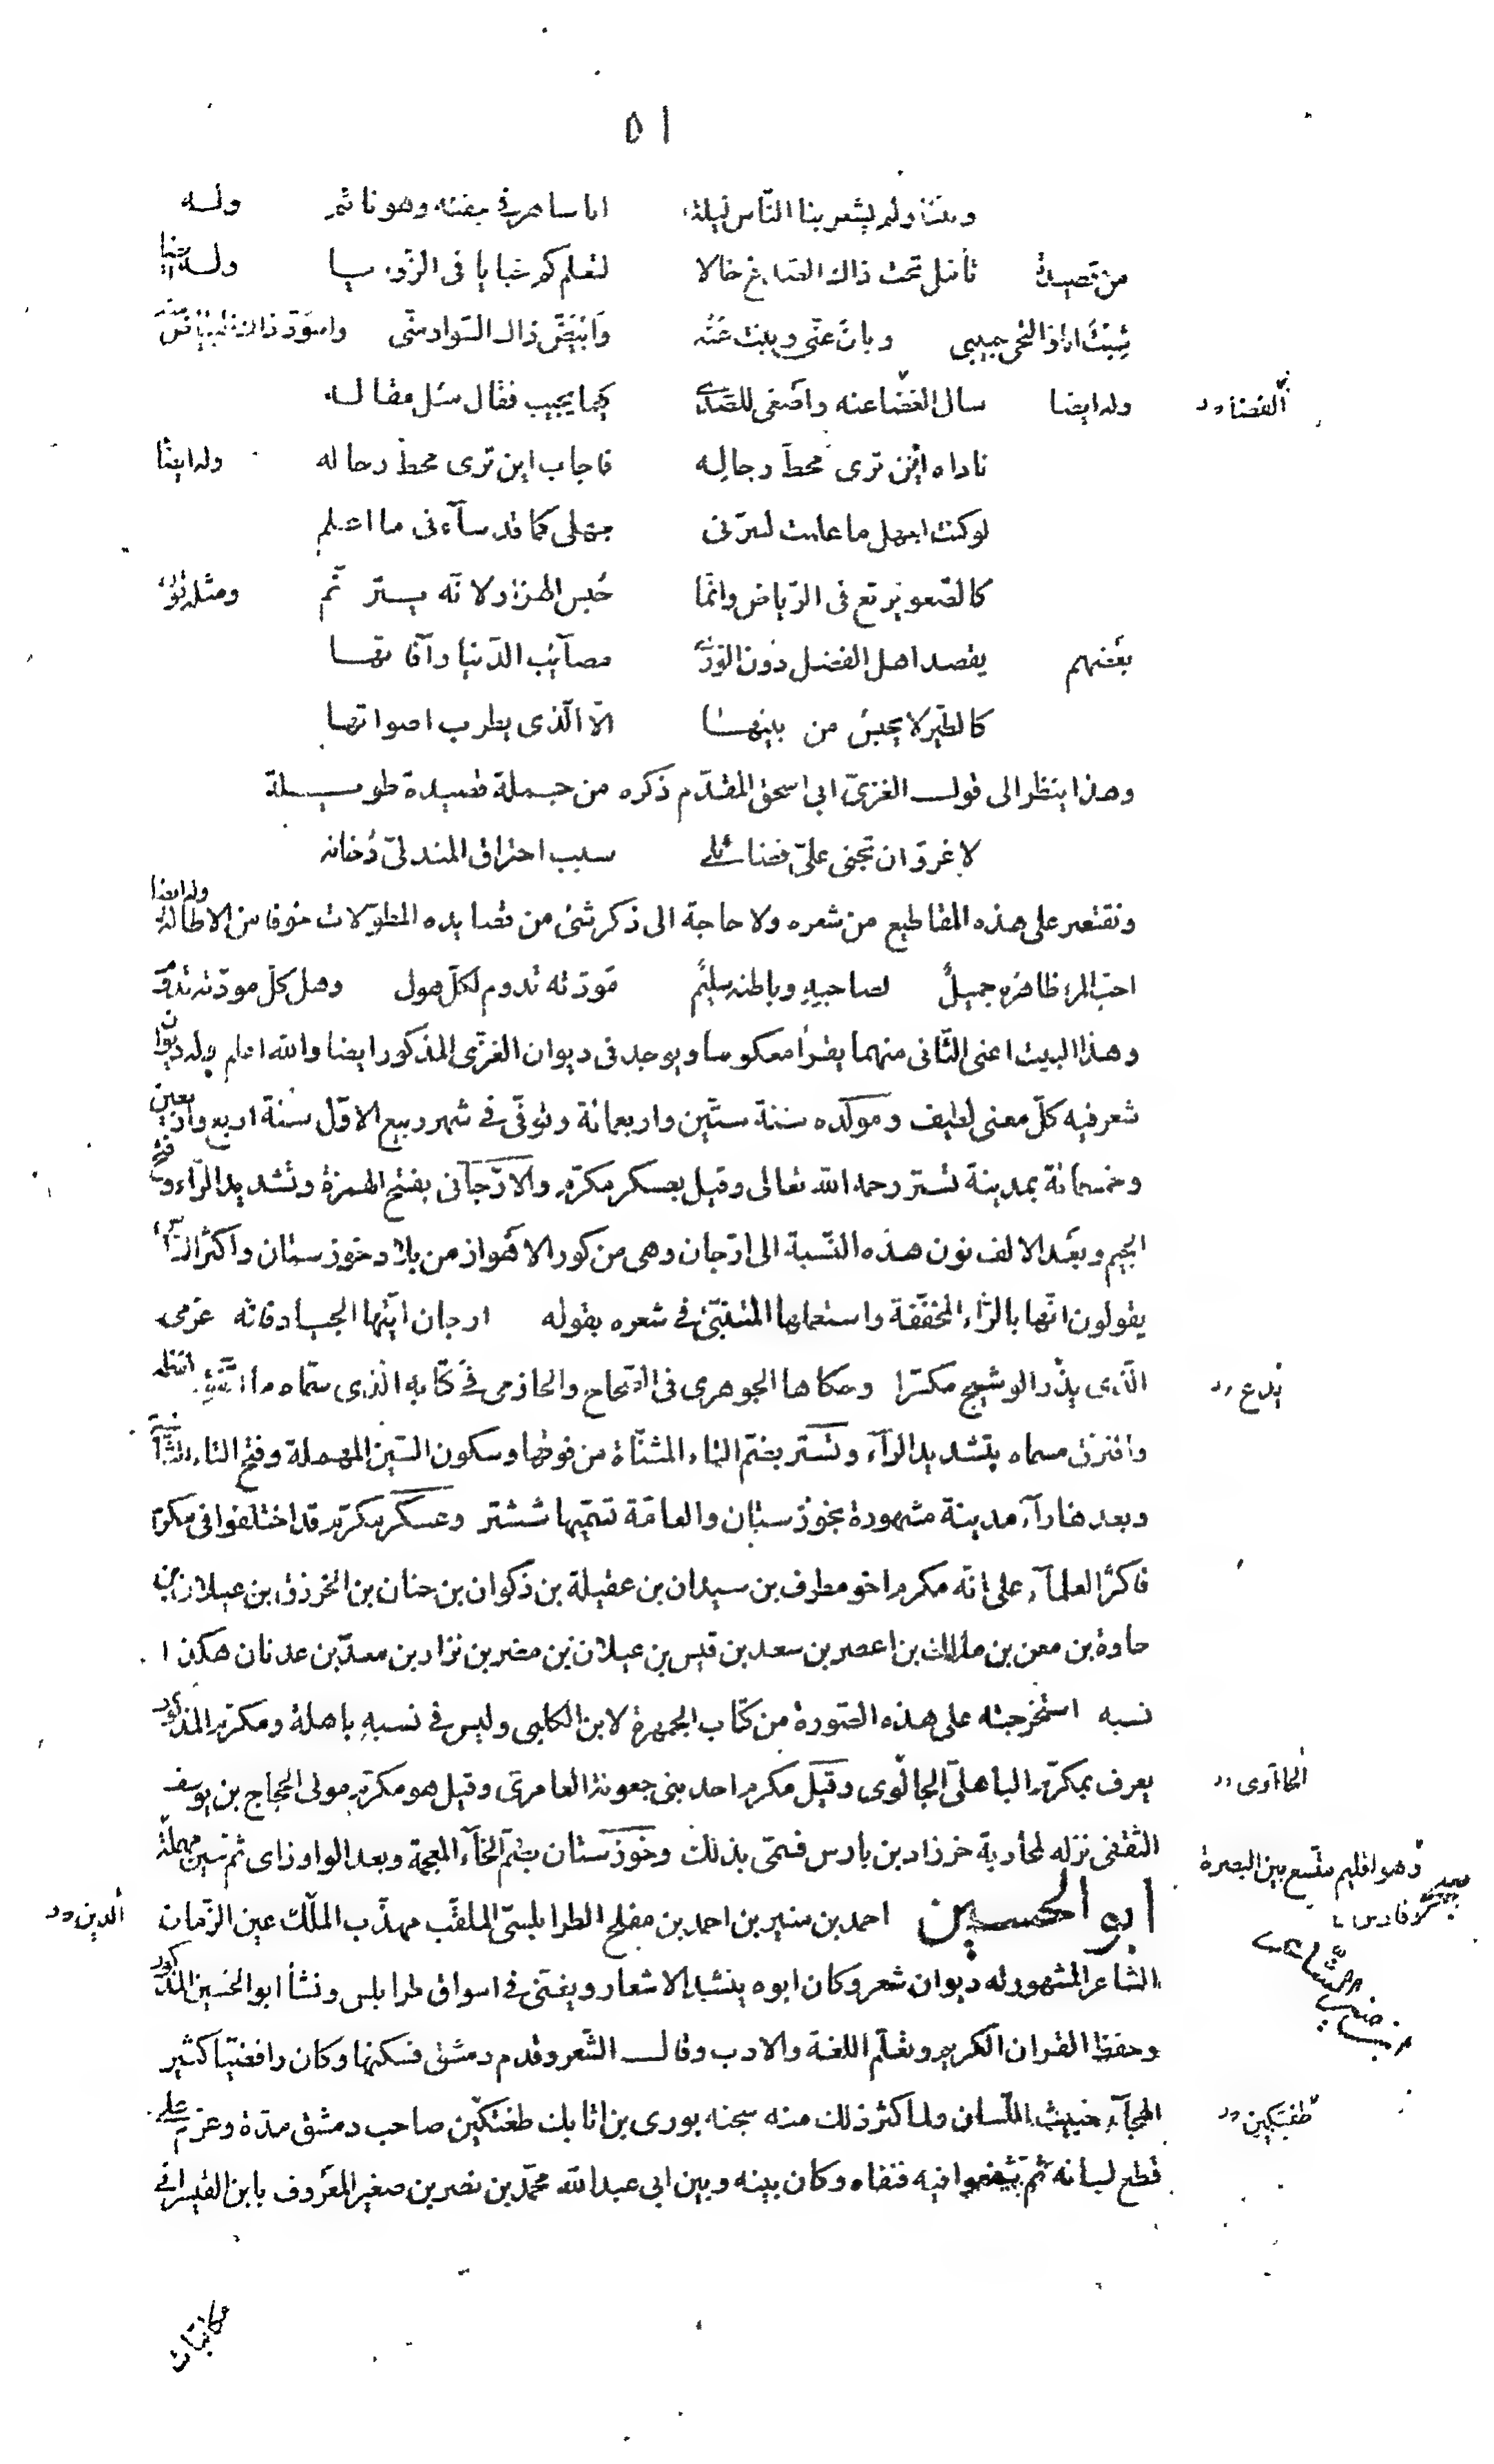 ٥١
وبتنا ولم يشعر بنا الناس ليلة انا ساهر فى جفنه وهو نائم وله
من قصيدة تأمل تحت ذاك الصدغ خالا لتعلم كم خبايا فى الزوايا وله ايضا
شبت انا والتحى حبيبى وبان عنّى وبنت عنه وابيضّ ذاك السواد منّى واسودّ ذاك البياض منه
وله ايضا سال الغضا عنه واصغى للصدى كيما يجيب فقال مثل مقاله
الفضا
ناداه اين ترى محطّ رحاله فاجاب اين ترى محطّ رحاله وله ايضا
لو كنت اجهل ما علمت لسرّنى جهلى كما قد سآءنى ما اعلم
كالصّعو يرتع فى الرّياض وانّما حُبس الهزار لانّه يترنّم ومثله قول
بعضهم يقصد اهل الفضل دون الورى مصآئب الدّنيا وآفاتها
كالطّير لا يحبس من بينها الّا الّذى يطرب اصواتها
وهذا ينظر الى قول الغزىّ ابى اسحق المقدّم ذكره من جملة قصيدة طويلة
لا غروَ ان تجنى علىّ فضائلى سبب احتراق المندلىّ دُخانه
ونقتصر على هذه المقاطيع من شعره ولا حاجة الى ذكر شئ من قصايده المطوّلات خوفا من الاطالة وله ايضا
احبّ المرء ظاهره جميلٌ لصاحبه وباطنه سليمٌ مودّته تدوم لكلّ هول وهل كلّ مودّته تدوم
وهذا البيت اعنى الثّانى منهما يقرأ معكوسا ويوجد فى ديوان الغزّى المذكور ايضا والله اعلم وله ديوان
شعر فيه كلّ معنى لطيف ومولده سنة ستّين واربعمائة وتوفّى فى شهر ربيع الاوّل سنة اربع واربعين
وخمسمائة بمدينة تستر رحمه الله تعالى وقيل بعسكر مكرّم والارّجانى بفتح الهمزة وتشديد الرّاء وفتح
الجيم وبعد الالف نون هذه النّسبة الى ارّجان وهى من كور الاهواز من بلاد خوزستان واكثر النّاس
يقولون انّها بالرّاء المخفّفة واستعملها المتنبّئ فى شعره بقوله ارجان ايّتها الجياد فانّه عزمى
الّذى يذر الوشيج مكسّرا وحكاها الجوهرى فى الصّحاح والحازمى فى كتابه الّذى سمّاه ما اتّفق لفظه
يدع
وافترق مسماه بتشديد الرآء وتستر بضمّ التاء المثنّاة من فوقها وسكون السّين المهملة وفتح التاء الثّانية
وبعدها رآء مدينة مشهورة بخوزستان والعامّة تسمّيها ششتر وعسكر مكرّم قد اختلفوا فى مكرم
فاكثر العلمآء على انّه مكرم اخو مطرف بن سيدان بن عقيلة بن ذكوان بن حنان بن الخرزق بن عيلان بن
حاوة بن معن بن مالك بن اعصر بن سعد بن قيس بن عيلان بن مضر بن نزار بن معدّ بن عدنان هكذا
نسبه استخرجته على هذه الصّورة من كتاب الجمهرة لابن الكلبى وليس فى نسبه باهلة ومكرّم المذكور
يعرف بمكرّم الباهلىّ الجاٴوى وقيل مكرم احد بنى جعونة العامرىّ وقيل هو مكرّم مولى الحجّاج بن يوسف
الحاوى
الثّقفى نزله لمحاربة خرزاد بن بارس فسمّى بذلك وخوزستان بضمّ الخآء المعجمة وبعد الواو زاى ثم سين مهملة
وهو اقليم متّسع بين البصرة
وفارس
ابو الحسين احمد بن منير بن احمد بن مفلح الطرابلسىّ الملقّب مهذّب الملك عين الزّمان
الدين
الشاعر المشهور له ديوان شعر وكان ابوه ينشد الاشعار ويغنّى فى اسواق طرابلس ونشأ ابو الحسين المذكور
وحفظ القران الكريم وتعلّم اللغة والادب وقال الشّعر وقدم دمشق فسكنها وكان رافضيّا كثير
الهجآء خبيث اللّسان ولما كثر ذلك منه سجنه بورى بن اتابك طغتكين صاحب دمشق مدّة وعزم على
طغتكين
قطع لسانه ثمّ شفعوا فيه فنفاه وكان بينه وبين ابى عبد الله محمّد بن نصر بن صغير المعروف بابن القيسرانى
مكاتبات